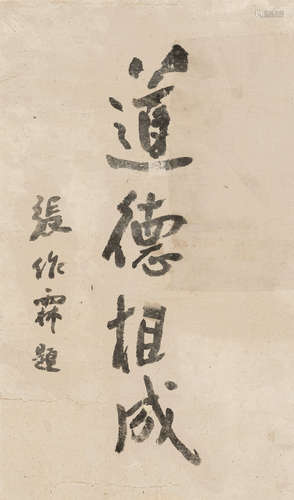 道德相成
張作霖題